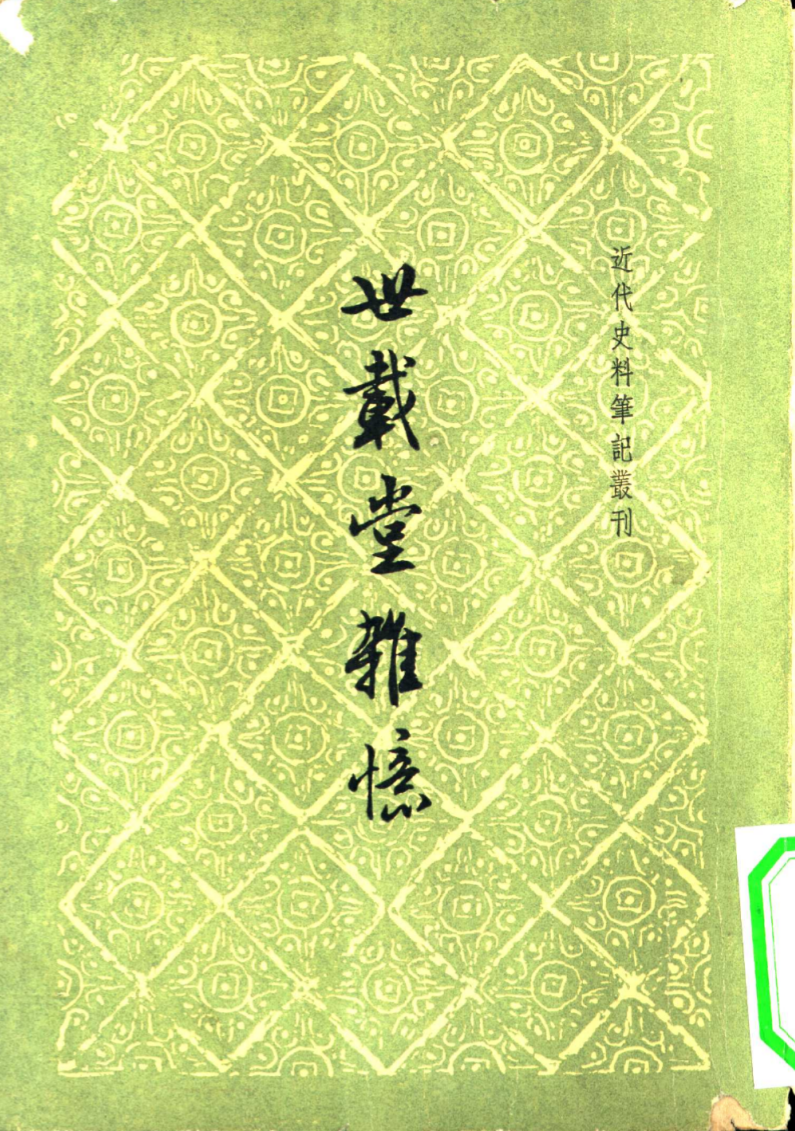 近代史料筆記叢刊
世載堂雜憶